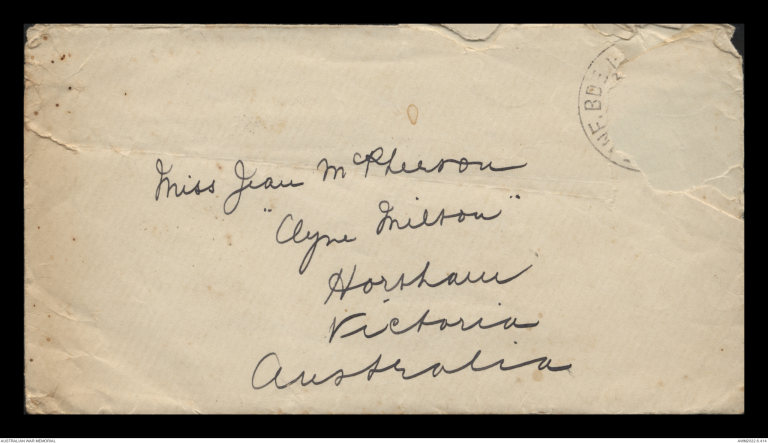 INF. BDE
Miss Jean McPherson
"Clyne Milton"
Horsham
Victoria
Australia
AUSTRALIAN WAR MEMORIAL